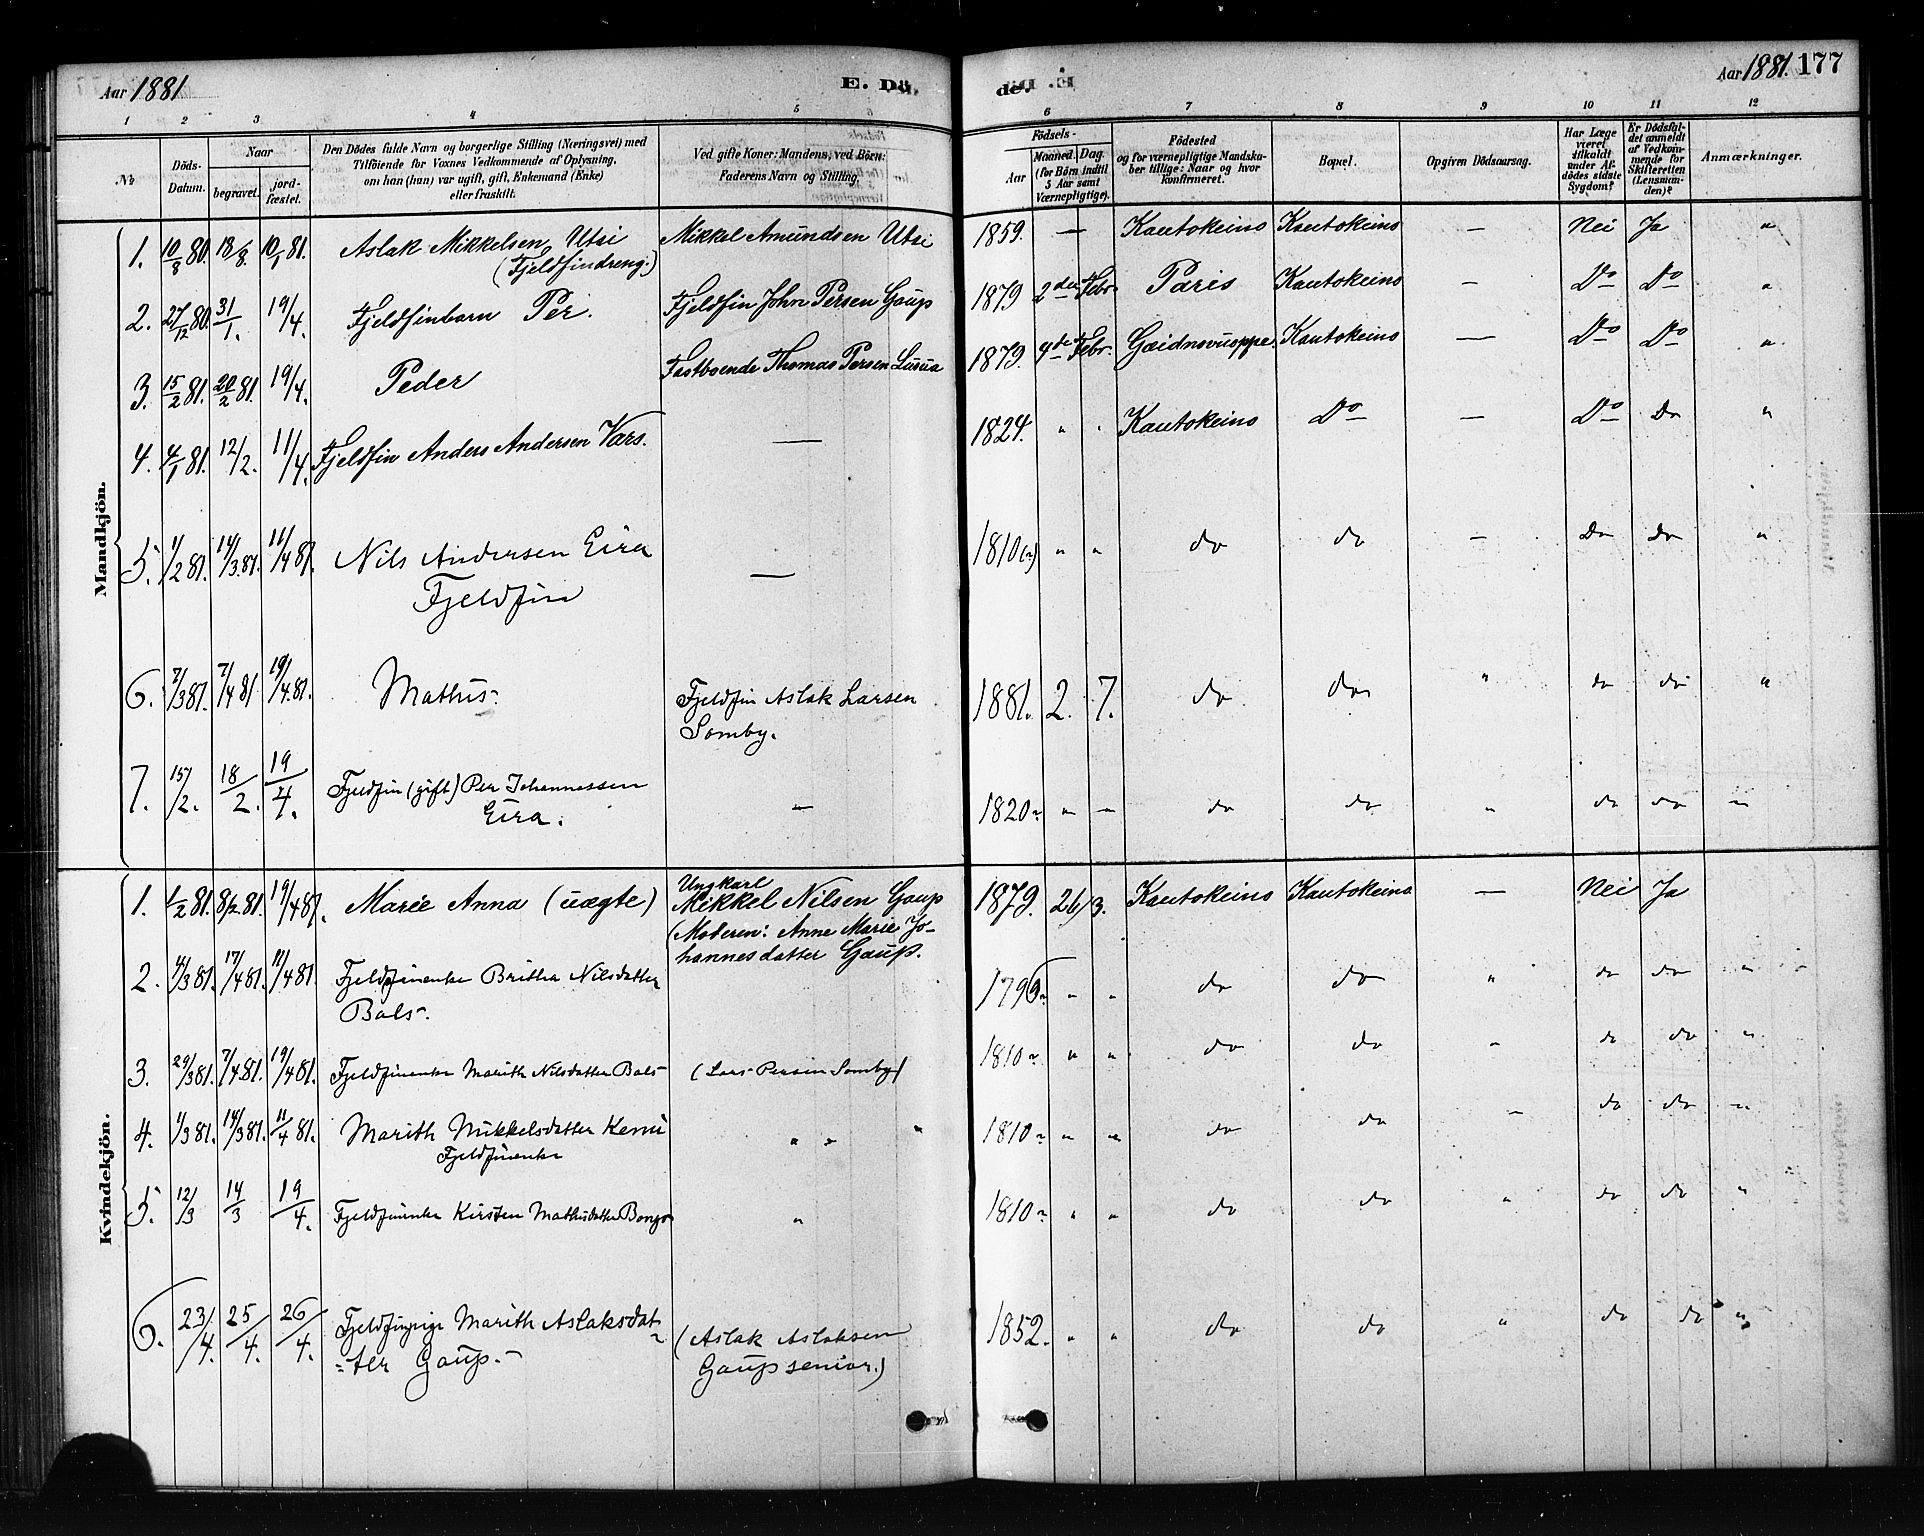 Aar 1881
E. Dö-
1 2 3 4 5
No
Döds-Datum.
Naar
begravet.
jord-fæstet.
Den Dödes fulde Navn og borgerlige Stilling (Næringsvei) med
Tilföiende for Voxnes Vedkommende af Oplysning,
om han (hun) var ugift, gift, Enkemand (Enke)
eller fraskilt.
Ved gifte Koner: Mandens, ved Börn:
Faderens Navn og Stilling.
Mandkjön.
1. 10/8 80. 18/8. 10/1 81. Aslak Mikkelsen Utsi Mikkel Amundsen Utsi
(Fjeldfindreng.)
2. 27/12 80. 31/1. 19/4. Fjeldfinbarn Per. Fjeldfin John Persen Gaup
3. 15/2 81. 20/2 81. 19/4. Peder Fastboende Thomas Persen
4. 4/1 81. 12/2. 11/4. Fjeldfin Anders Andersen Vars. —
5. 1/2 81. 14/3 81. 11/4 81. Nils Andersen Eira —
Fjeldfin
6. 7/3 81. 7/4 81 19/4 81. Mathis. Fjeldfin Aslak Larsen
Somby.
7. 15/2. 18/2. 19/4. Fjeldfin (gift) Per Johannessen —
Eira.
Kvindekjön.
1. 1/2 81. 8/2 81. 19/4 81. Marie Anna (uægte) Ungkarl
Mikkel Nilsen Gaup
(Moderen: Anne Marie Jo-
hannesdatter Gaup.
2. 4/3 81. 17/4 81. 11/4 81. Fjeldfinenke Britha Nilsdatter
Bals.
3. 29/3 81. 7/4 81. 19/4 81. Fjeldfinenke Marith Nilsdatter Bals (Lars Persen Somby)
4. 1/3 81. 14/3 81. 11/4 81. Marith Mikkelsdatter Kemi " " "
Fjeldfinenke
5. 12/3 14/3 19/4. Fjeldfinenke Kirsten Mathisdatter Bongo "
6. 23/4. 25/4. 26/4. Fjeldfinpige Marith Aslaksdat-
ter Gaup. (Aslak Aslaksen
Gaup senior.)
de.
Aar 1881. 177
6 7 8 9 10 11 12
Födsels-
Aar
Maaned. Dag.
(for Börn indtil
5 Aar samt
Værnepligtige).
Födested
og for værnepligtige Mandska-
ber tillige: Naar og hvor
konfirmeret.
Bopæl.
Opgiven Dödsaarsag.
Har Læge
været
tilkaldt
under Af-
dödes sidste
Sygdom?
Er Dödsfal-
det anmeldt
af Vedkom-
mende for
Skifteretten
(Lensman-
den)?
Anmærkninger.
1859. — Kautokeino Kautokeino — Nei Ja "
1879 2den Febr. Paris Kautokeino — Do Do "
1879. 4de Febr. Gaidnovuoppe. Kautokeino — Do Do "
1824. " " Kautokeino Do — Do Do "
1810(?) " " do do — Do do "
1881. 2. 7. do do " do do "
1820? " — do do " do do "
1879. 26/3. Kautokeino Kautokeino — Nei Ja
" " do do " do do "
1810? " " do do — do do "
1810? " " do do — do do "
1810? " " do do " do do "
1852. " " do do " do do "